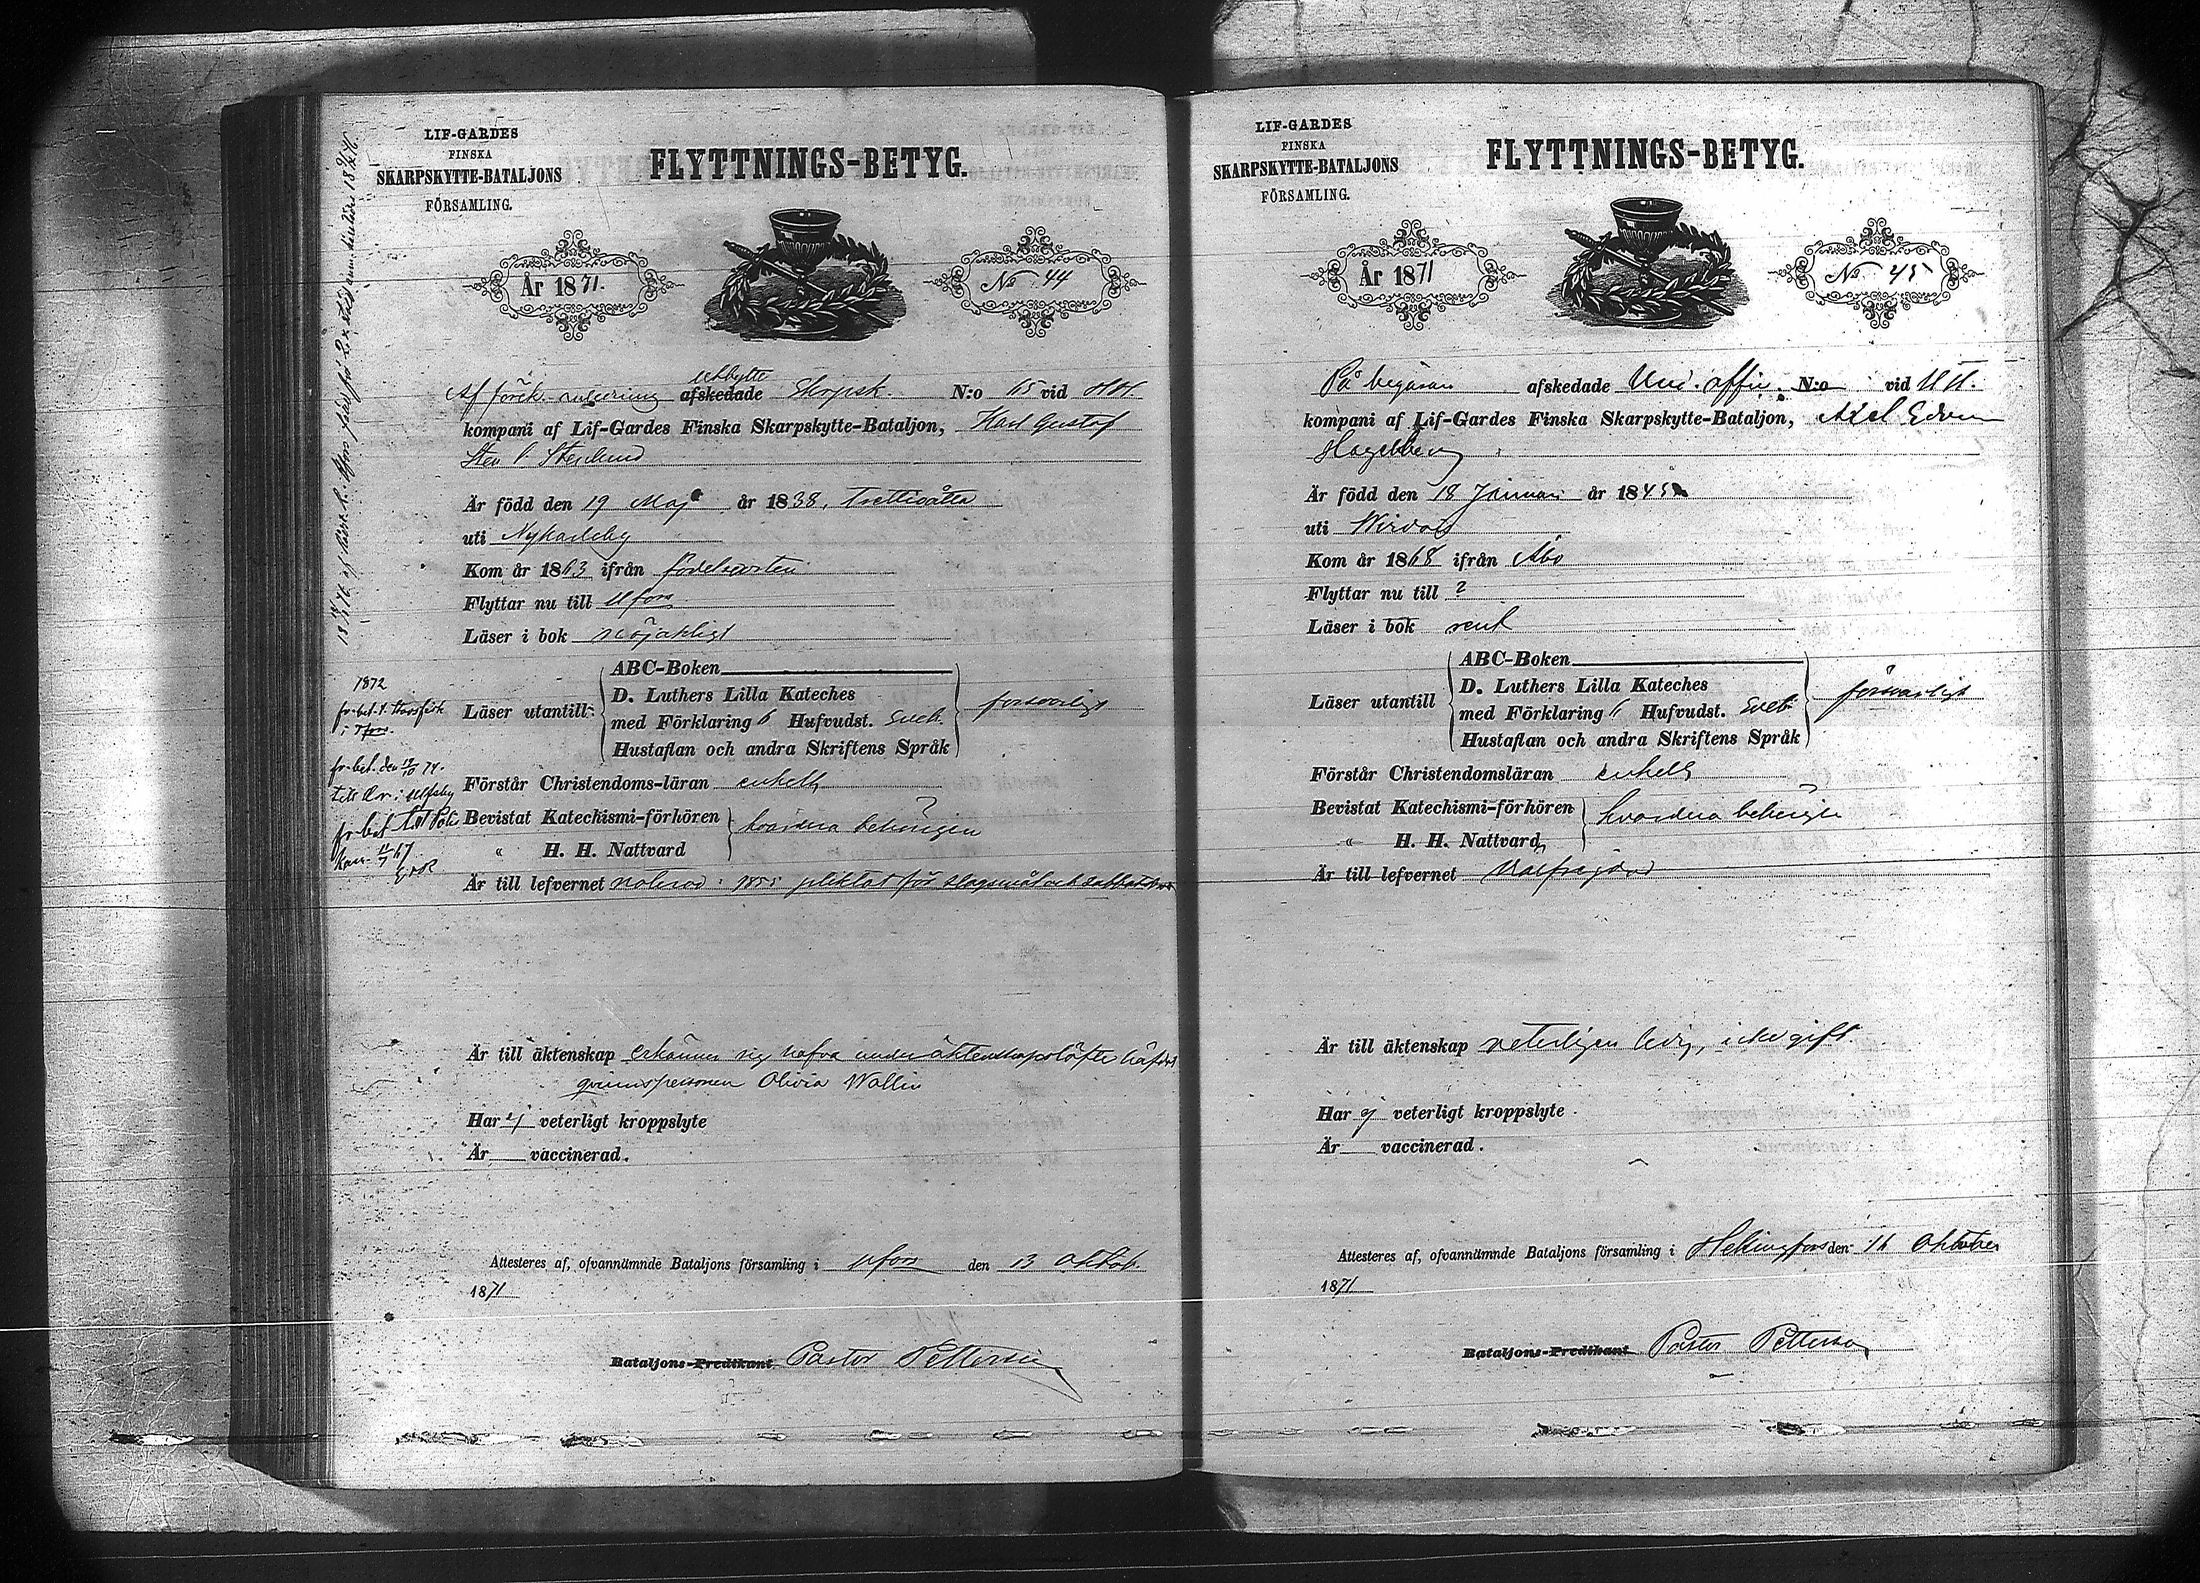 LIF-GARDES
FINSKA
SKARPSKYTTE-BATALJONS
FÖRSAMLING.
FLYTTNINGS-BETYG.
År 1871.
No 44
utbytte
afskedade Skrpsk. N:o 65 vid
kompani af Lif-Gardes Finska Skarpskytte-Bataljon, Karl Gustaf
Är född den 19 Maj år 1838, trettioåtta
uti Nykarleby
Kom år 1863 ifrån födelseorten
Flyttar nu till Hfors
Läser i bok nöjaktligt
ABC-Boken
D. Luthers Lilla Kateches
Läser utantill: med Förklaring 6 Hufvudst. Sveb. försvarligt
Hustaflan och andra Skriftens Språk
Förstår Christendoms-läran enkelt
Bevistat Katechismi-förhören hvardera behörigen
" H. H. Nattvard
Är till lefvernet pliktat för slagsmål och
Är till äktenskap erkänner sig hafva under äktenskapslöfte häfdat
qvinnspersonen Olivia Wallin
Har ej veterligt kroppslyte
Är vaccinerad.
Attesteres af, ofvannämnde Bataljons församling i Hfors den 13 Oktob.
1871
Bataljons-Predikant Pastor Pettersson
1872
i Tfors.
fr-bet. den 12/10 74.
fr-bet
LIF-GARDES
FINSKA
SKARPSKYTTE-BATALJONS
FÖRSAMLING.
FLYTTNINGS-BETYG.
År 1871
No 45
På begäran afskedade Und. offic. N:o vid
kompani af Lif-Gardes Finska Skarpskytte-Bataljon, Axel Edvin
Hagelberg
Är född den 18 Januari år 1845
uti Wirdois
Kom år 1868 ifrån Åbo
Flyttar nu till ?
Läser i bok rent
ABC-Boken
D. Luthers Lilla Kateches
Läser utantill med Förklaring 6 Hufvudst. Sveb. försvarligt
Hustaflan och andra Skriftens Språk
Förstår Christendomsläran enkelt
Bevistat Katechismi-förhören hvardera behörigen
" H. H. Nattvard
Är till lefvernet Välfrejdad
Är till äktenskap veterligen ledig, icke gift.
Har ej veterligt kroppslyte
Är vaccinerad.
Attesteres af, ofvannämnde Bataljons församling i Helsingfors den 16 Oktober
1871
Bataljons-Predikant Pastor Pettersson